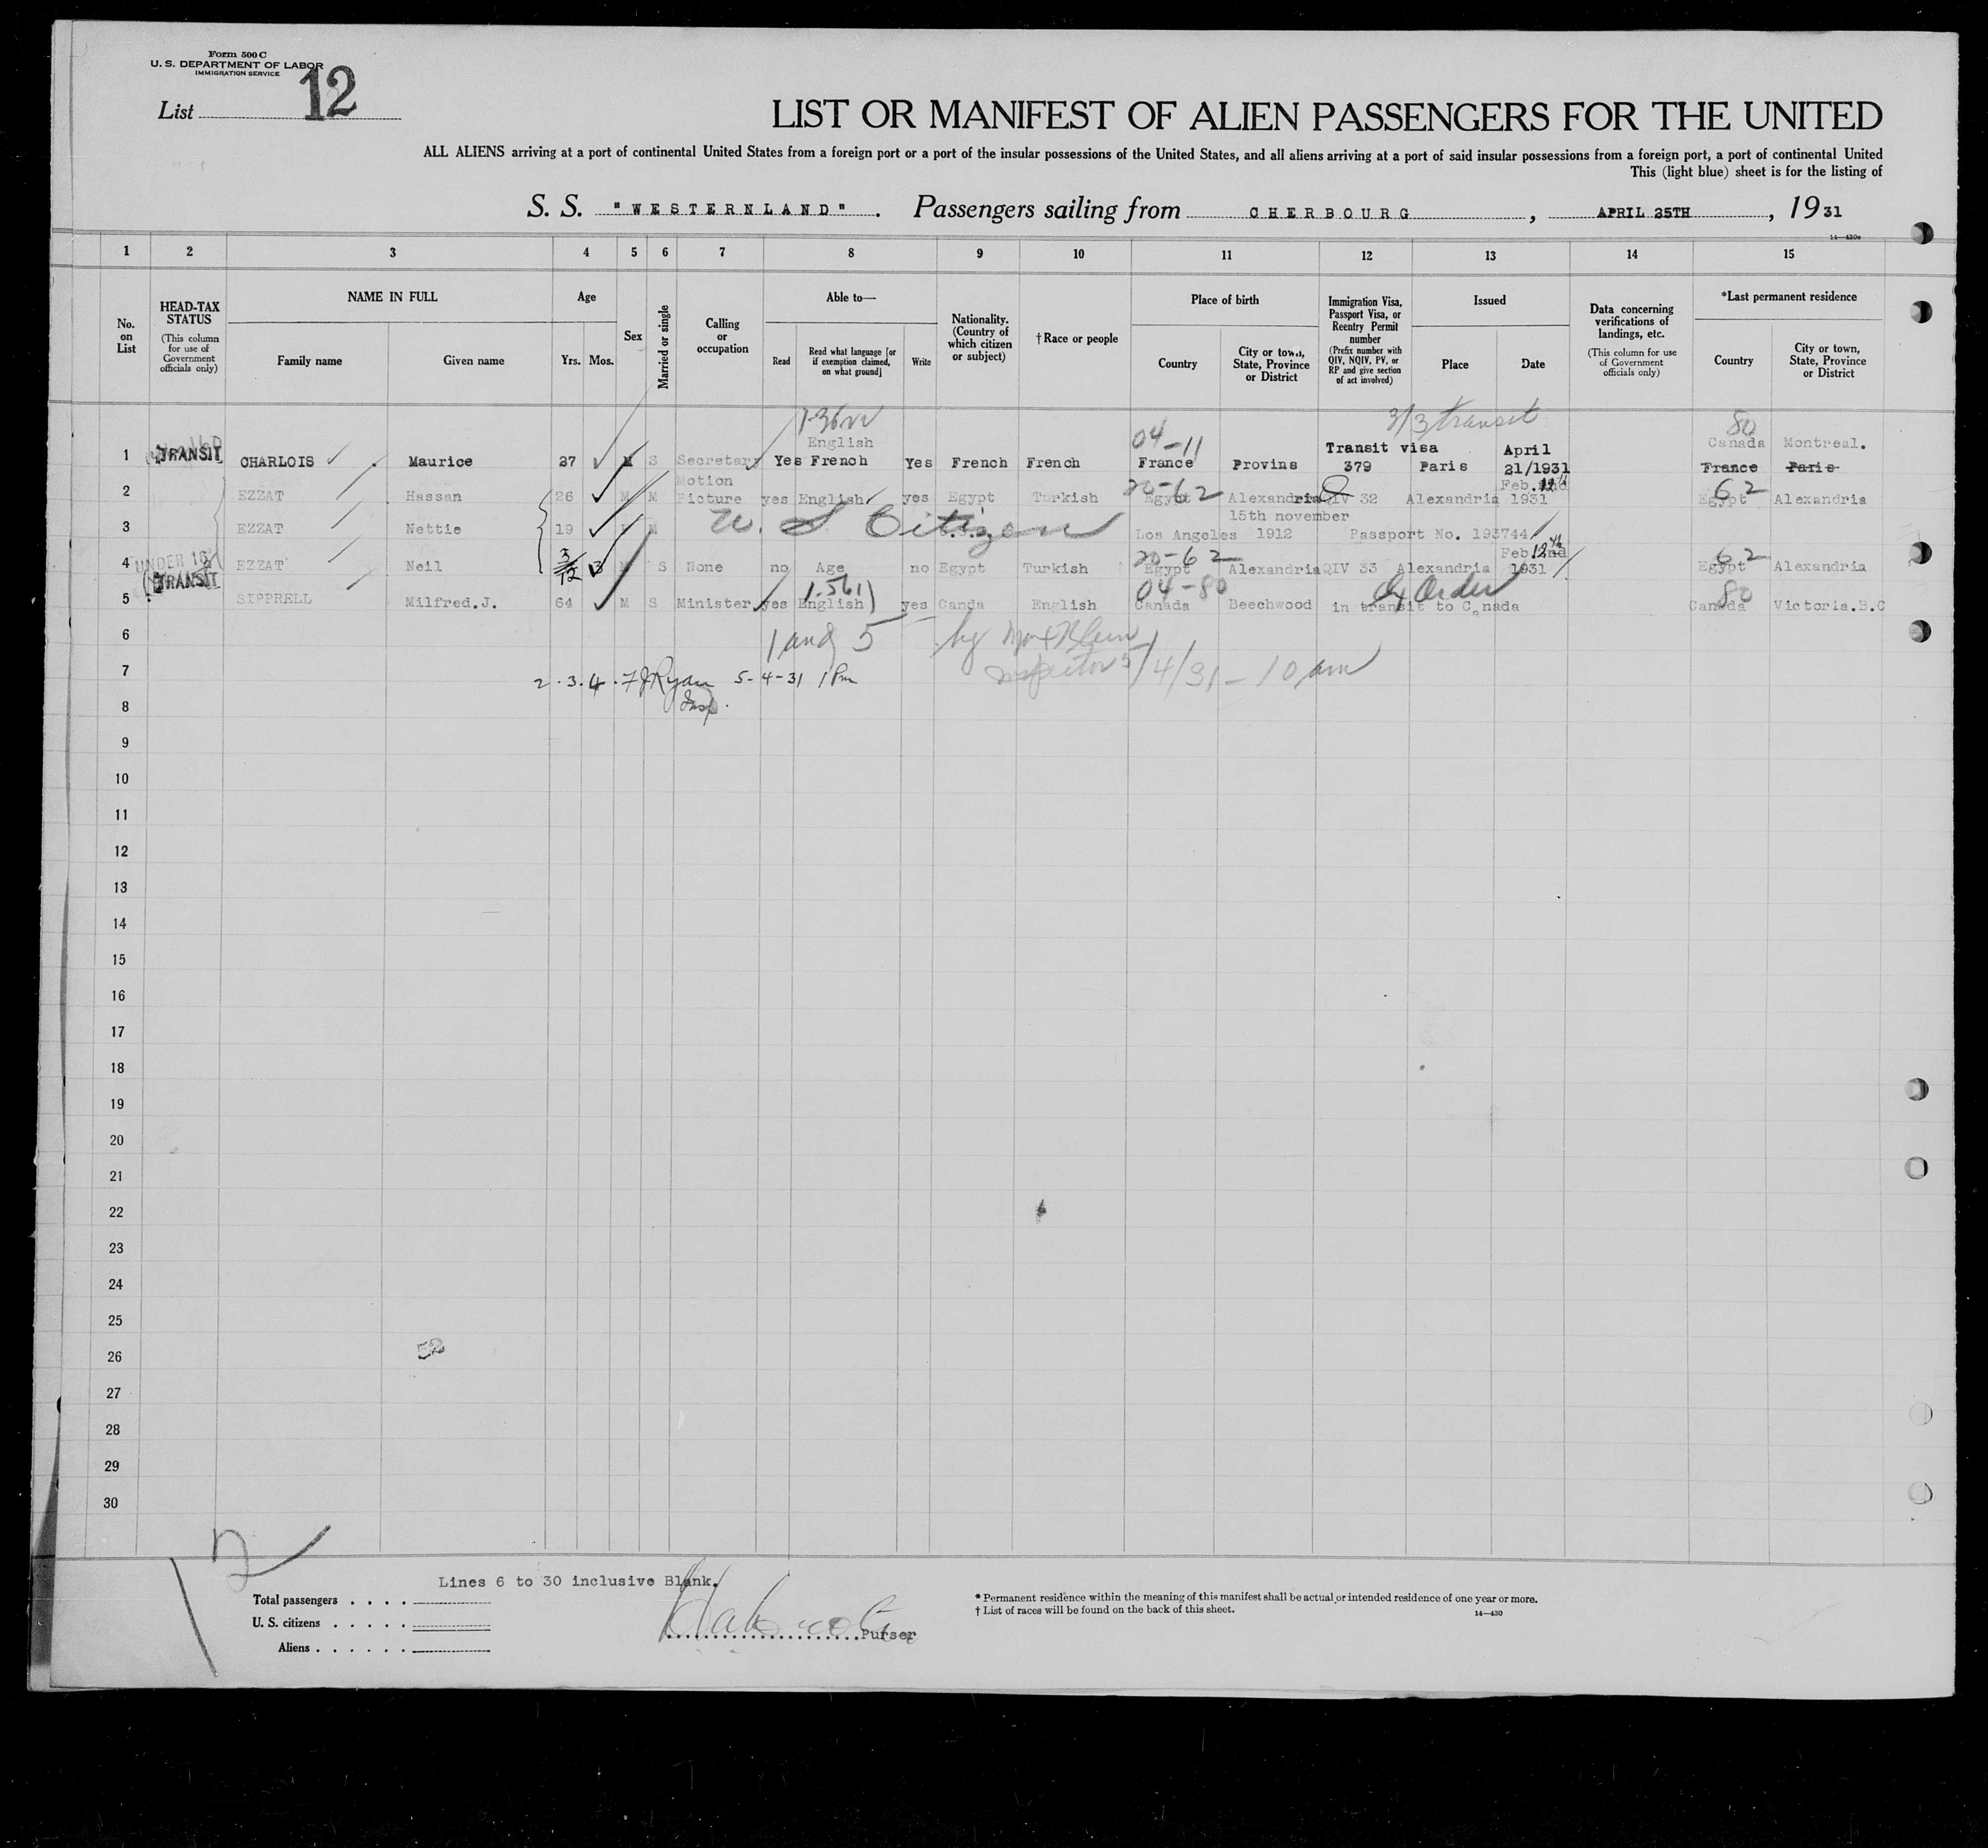 Form 500 C
U. S. DEPARTMENT OF LABOR
IMMIGRATION SERVICE
List 12
LIST OR MANIFEST OF ALIEN PASSENGERS FOR THE UNITED
ALL ALIENS arriving at a port of continental United States from a foreign port or a port of the insular possessions of the United States, and all aliens arriving at a port of said insular possessions from a foreign port, a port of continental United
This (light blue) sheet is for the listing of
S. S. "WESTERNLAND". Passengers sailing from CHERBOURG, APRIL 25TH, 1931
14—430c
1 2 3 4 5 6 7 8 9 10 11 12 13 14 15
No. on List
HEAD-TAX STATUS (This column for use of Government officials only)
NAME IN FULL
Family name
Given name
Age
Yrs. Mos.
Sex
Married or single
Calling or occupation
Able to—
Read
Read what language [or if exemption claimed, on what ground]
Write
Nationality. (Country of which citizen or subject)
† Race or people
Place of birth
Country
City or town, State, Province or District
Immigration Visa, Passport Visa, or Reentry Permit number (Prefix number with QIV, NQIV, PV, or RP and give section of act involved)
Issued
Place
Date
Data concerning verifications of landings, etc. (This column for use of Government officials only)
*Last permanent residence
Country
City or town, State, Province or District
3/3 transit
English 04-11 Transit visa April 80 Canada Montreal.
1 TRANSIT CHARLOIS Maurice 27 M S Secretary Yes French Yes French French France Provins 379 Paris 21/1931 France Paris
Motion 20-62 Feb. 62
2 EZZAT Hassan 26 M M Picture yes English yes Egypt Turkish Egypt Alexandria QIV 32 Alexandria 1931 Egypt Alexandria
U. S Citizen 15th november
3 EZZAT Nettie 19 M Los Angeles 1912 Passport No. 193744
UNDER 16 20-62 Feb. 62
4 EZZAT Neil 3/12 M S None no Age no Egypt Turkish Egypt Alexandria QIV 33 Alexandria 1931 Egypt Alexandria
TRANSIT 1.561) 04-80 Ex Order 80
5 SIPPRELL Milfred.J. 64 M S Minister yes English yes Canda English Canada Beechwood in transit to Canada Canada Victoria.B.C
6 1 and 5 by
7 2.3.4. F J Ryan 5-4-31 1 Pm Inspector 5/4/31 - 10 am
8 Insp.
9
10
11
12
13
14
15
16
17
18
19
20
21
22
23
24
25
26
27
28
29
30
12
Lines 6 to 30 inclusive Blank.
Total passengers
U. S. citizens
Aliens
Purser
* Permanent residence within the meaning of this manifest shall be actual or intended residence of one year or more.
† List of races will be found on the back of this sheet.
14—430